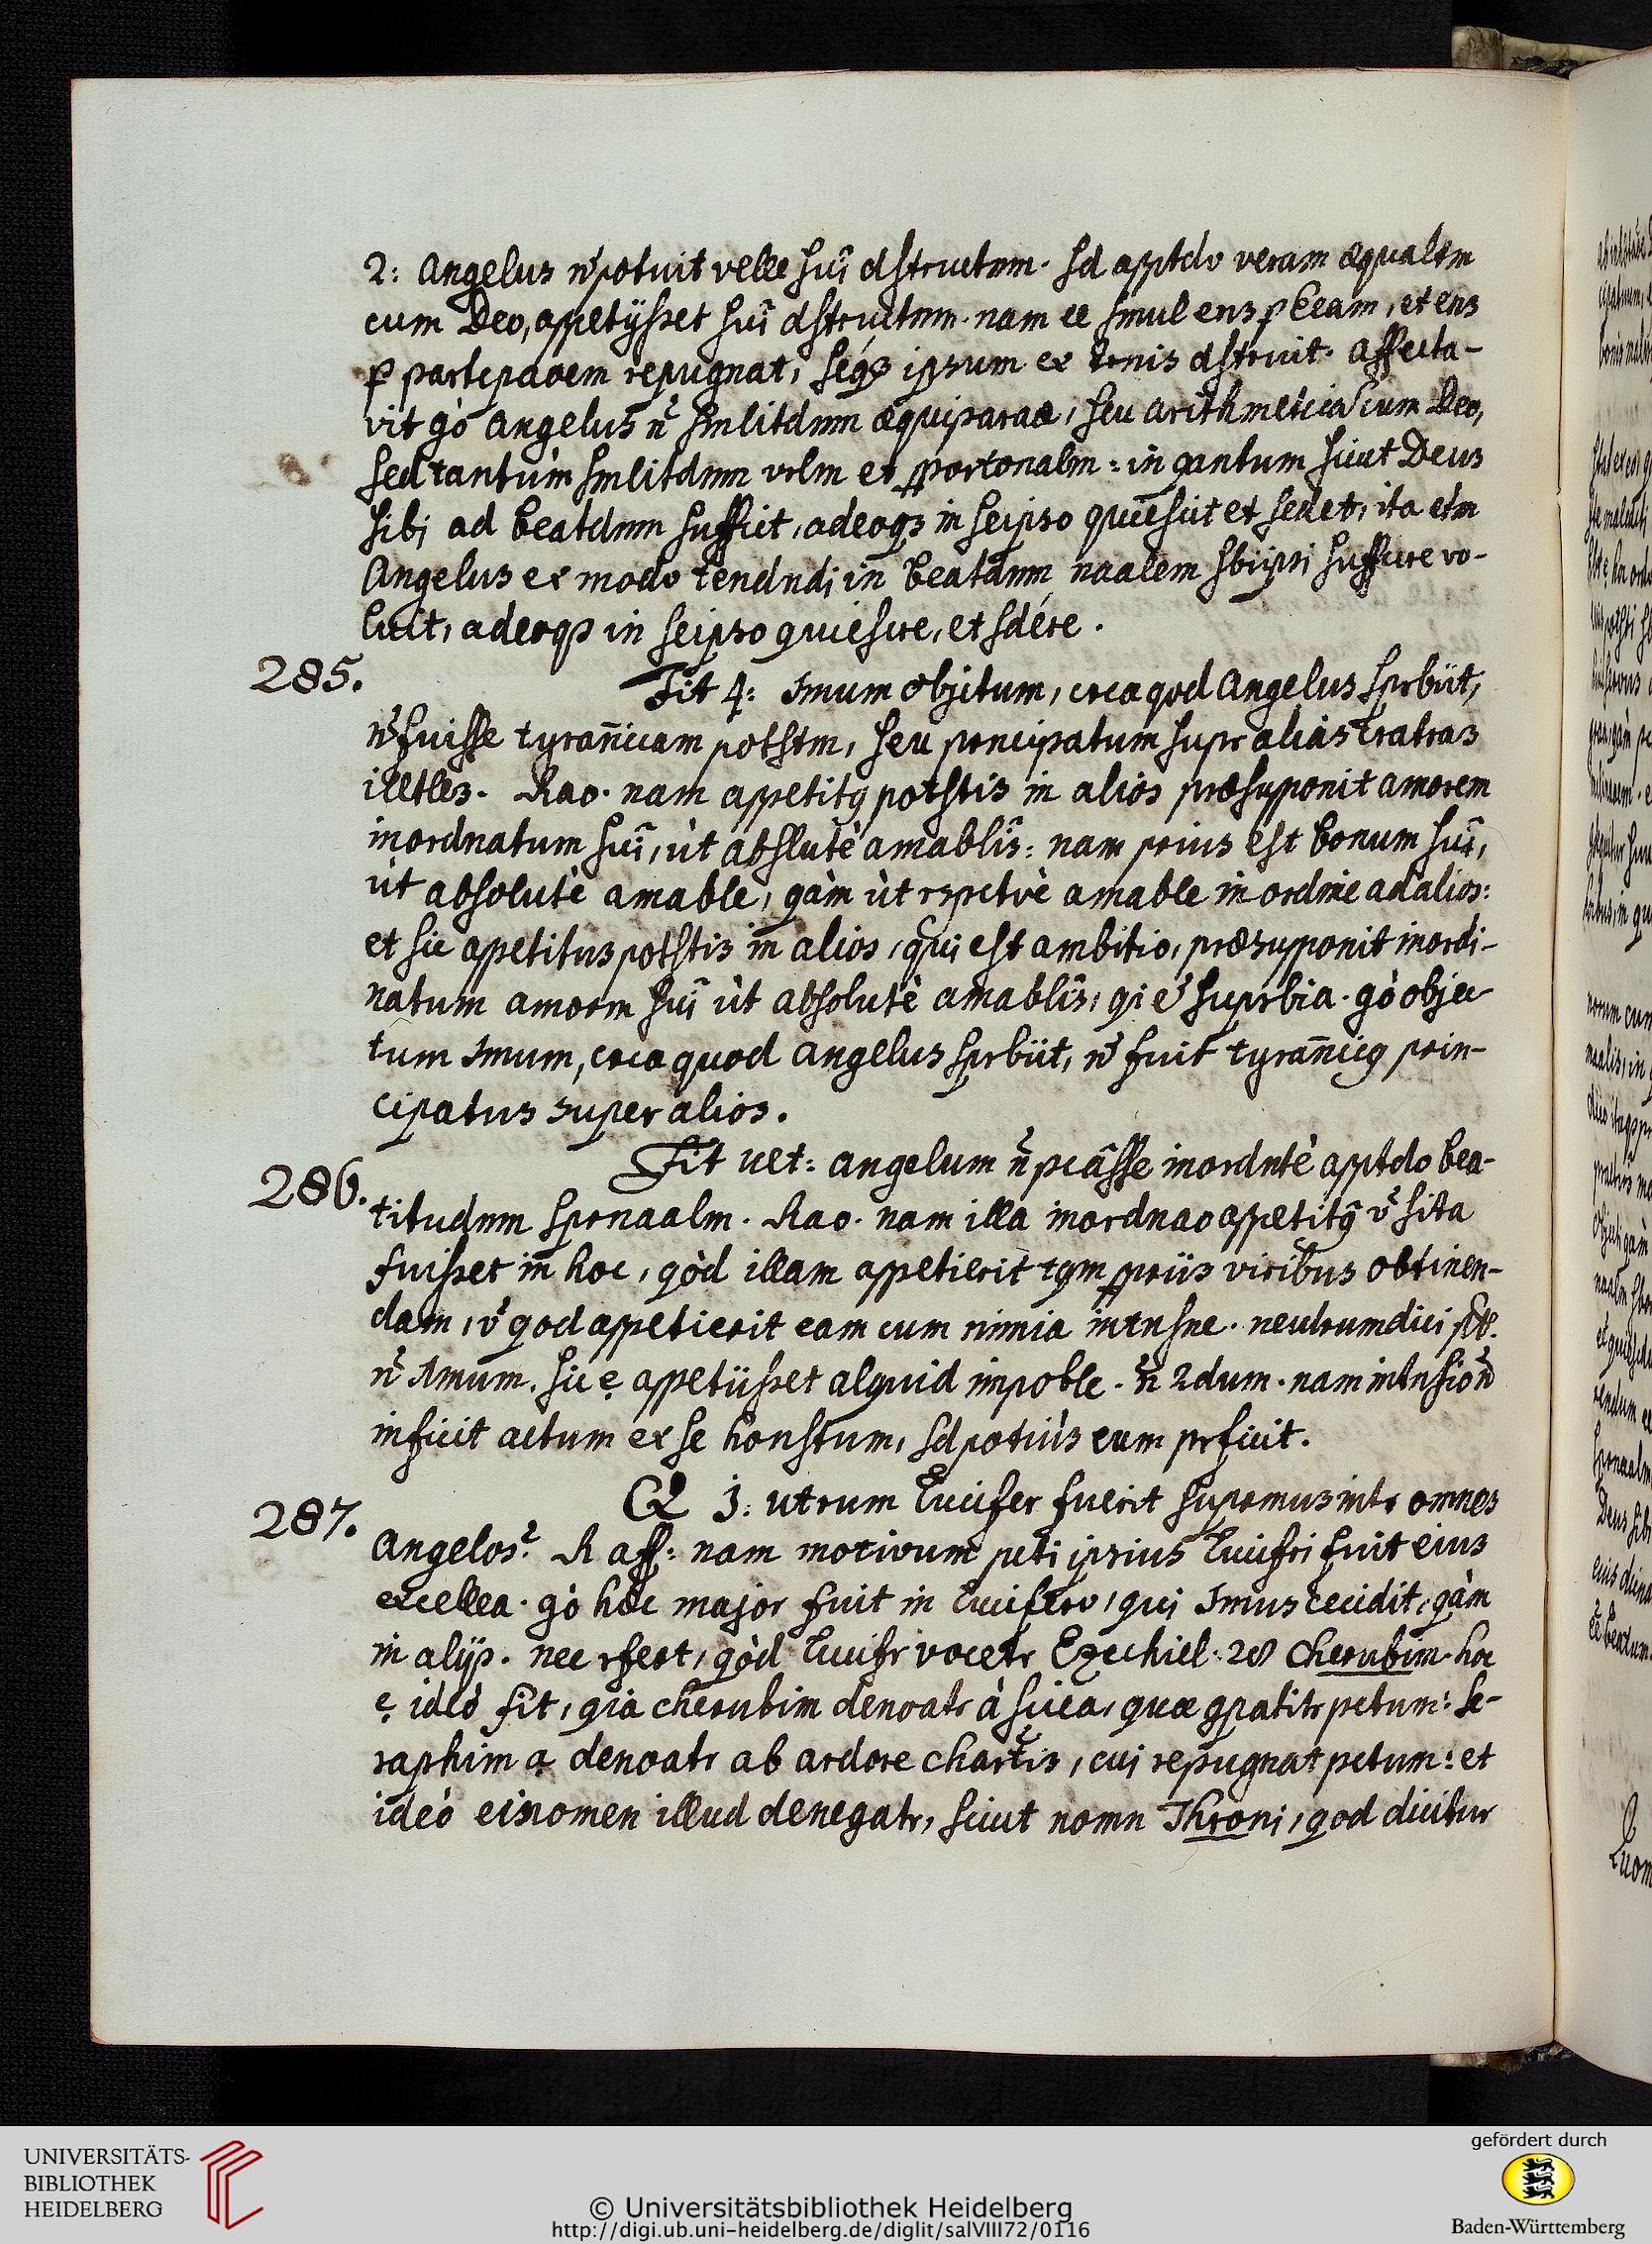 2: Angelus ñ potuit velle sui dstructnm. sd apptdo veram æqualtm
cum Deo, appetÿsset sui dstructnm. nam ee smul ens p Eeam, et ens
p partcpaoem repugnat, seqz ipsum ex trnis dstruit. Affecta-
vit gò angelus ñ smlitdnm æquiparaa, seu arithmetica cum Deo,
sed tantùm smlitdnm vrlm et pportonalm: in qantum sicut Deus
sibi ad beatdnm sufficit, adeoqz in seipso quiescit et sedet, ita etm
Angelus ex modo tendndi in beatdnm naalem sbiipsi sufficere vo-
luit, adeoqz in seipso quiescre, et sdére.
285.
Fit 4: 1mum objctum, crca qod Angelus sprbiit,
ñ fuisse tyrañicam potstm, seu prncipatum supr alias cratras
illtles. Rao. nam appetitq potstis in alios præsupponit amorem
inordnatum sui, ùt abslutè amablis: nam prius est bonum sui,
ùt absolutè amable, qàm ùt rspctvè amable in ordine ad alios:
et sic appetitus potstis in alios, qui est ambitio, præsupponit inordi-
natum amorm sui ùt absolutè amablis, qi e suprbia. gò objec
tum 1mum, crca quod angelus sprbiit, ñ fuit tyrañicq prin-
cipatus super alios.
286.
Fit ult: angelum ñ pcâsse inordntè apptdo bea-
titudnm sprnaalm. Rao. nam illa inordnao appetitq v sita
fuisset in hoc, qòd illam appetierit tqm ppriis viribus obtinen-
dam, v qod appetierit eam cum nimia intnsne. neutrum dici pt.
ñ 1mum. sic e appetiisset alquid impoble. ñ 2dum. nam intnsio ñ
inficit actum ex se honstum, sd potiùs eum prficit.
287.
Q 3: utrum Lucifer fuerit suprmus intr omnes
Angelos? R aff: nam motivum pcti ipsius Lucifri fuit eius
excellea. gò hoc major fuit in Lucifero, qui 1mus cecidit, qàm
in alÿs. nec rfert, qòd Lucifr vocetr Ezechiel: 28 Cherubim. hoc
e ideò fit, qia cherubim denoatr à sciea, quæ qpatitr pctum: Se-
raphim a denoatr ab ardore chartis, cui repugnat pctum: et
ideò ei nomen illud denegatr, sicut nomn Throni, qod dicitur
UNIVERSITÄTS-
BIBLIOTHEK
HEIDELBERG
© Universitätsbibliothek Heidelberg
http://digi.ub.uni-heidelberg.de/diglit/salVIII72/0116
gefördert durch
Baden-Württemberg